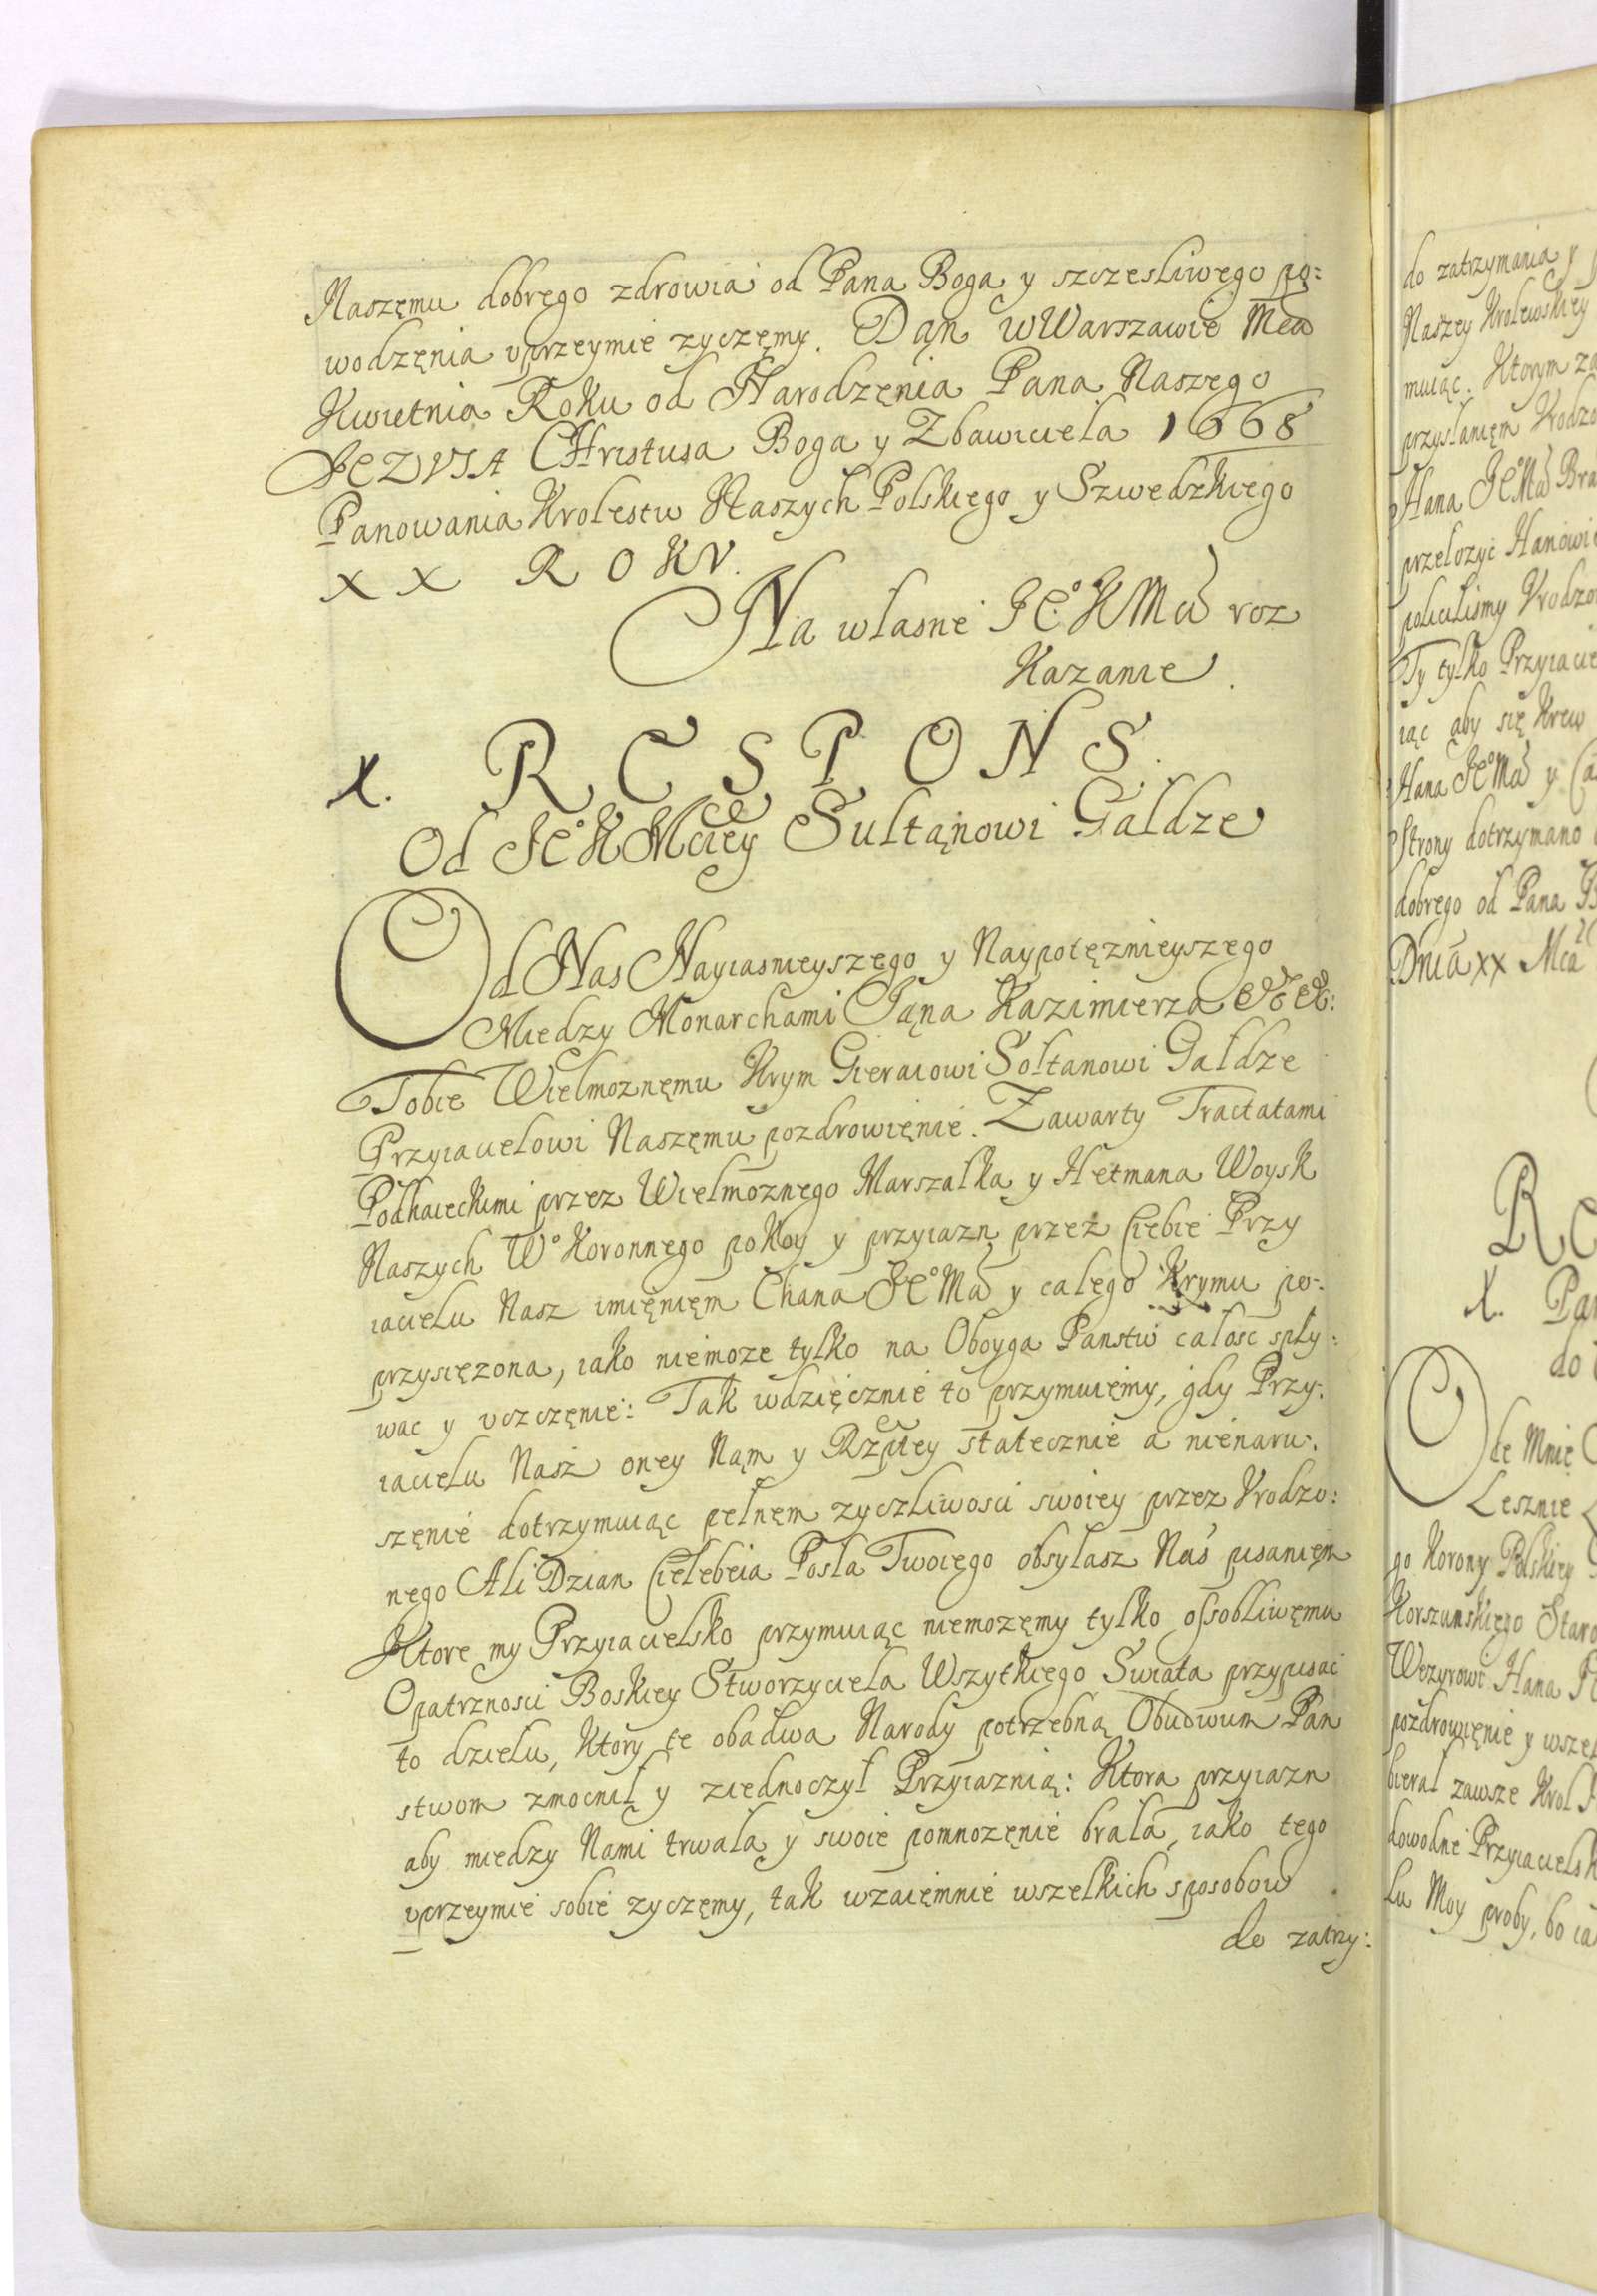 Naszęmu dobrego zdrowia od Pana Boga y szczesliwego po:
wodzęnia vprzeymie zyczęmy. Dąn wWarszawie Mca
Kwietnia Roku od Narodzęnia Pana Naszego
JEZVSA CHristusa Boga y Zbawiciela 1668
Panowania Krolestw Naszych Polskiego y Szwedzkiego
XX ROKV.
Na wlasne JE°KMci roz
Kazanie.
X. RESPONS.
Od JE°KMciey Sultąnowi Galdze
Od Nas Nayiasnieyszego y Naypotęznieyszego
Miedzy Monarchami Jąna Kazimierza &c &c:
Tobie Wielmoznęmu Krym Gieraiowi Soltanowi Galdze
Przyiacielowi Naszęmu pozdrowięnie. Zawarty Tractatami
Podhaieckimi przez Wielmoznego Marszalka y Hetmana Woysk
Naszych W° Koronnego poKoy y przyiazn przez Ciebie Przy
iacielu Nasz imięnięm Chana JE°Mci y calego Krymu po:
przysięzona, iako niemoze tylko na Oboyga Panstw calosc sply:
wac y vczczęnie: Tak wdzięcznie to przymuięmy, gdy Przy:
iacielu Nasz oney Nąm y Rzptey statecznie a nienaru:
szęnie dotrzymuiąc pelnęm zyczliwosci swoiey przez Vrodzo:
nęgo Ali Dzian Cielebeia Posla Twoięgo obsylasz Nas pisanięm
Ktore my Przyiacielsko przymuiąc niemozęmy tylko ossobliwęmu
Opatrznosci Boskiey Stworzyciela Wszytkiego Swiata przypisac
to dzielu, Ktory te obadwa Narody potrzebną Obudwum Pan
stwom zmocnil y ziednoczyl Przyiaznią: Ktora przyiazn
aby miedzy Nami trwala y swoie pomnozęnie brala, iako tego
vprzeymie sobie zyczęmy, tak wzaięmnie wszelkich sposobow
do zatrzy:
do zatrzymania y
Naszey Krolewskiey
muiąc. Ktorym za
przyslanięm Vrodzo
Hana JE°Mci Bra
przelozyc Hanowi
polecilismy Vrodzo
Ty tylko Przyiacie
iąc aby się Krew
Hana JE°Mci y Ca
Strony dotrzymano
dobrego od Pana B
Dnia xx Mca
RE
X. Pan
do
Ode Mnie
Lesznie
go Korony Polskiey
Korszunskięgo Staro
Wezyrowi Hana
pozdrowięnie y wszel
bieral zawsze Krol
dowodne Przyiacielsk
lu Moy proby, bo ia